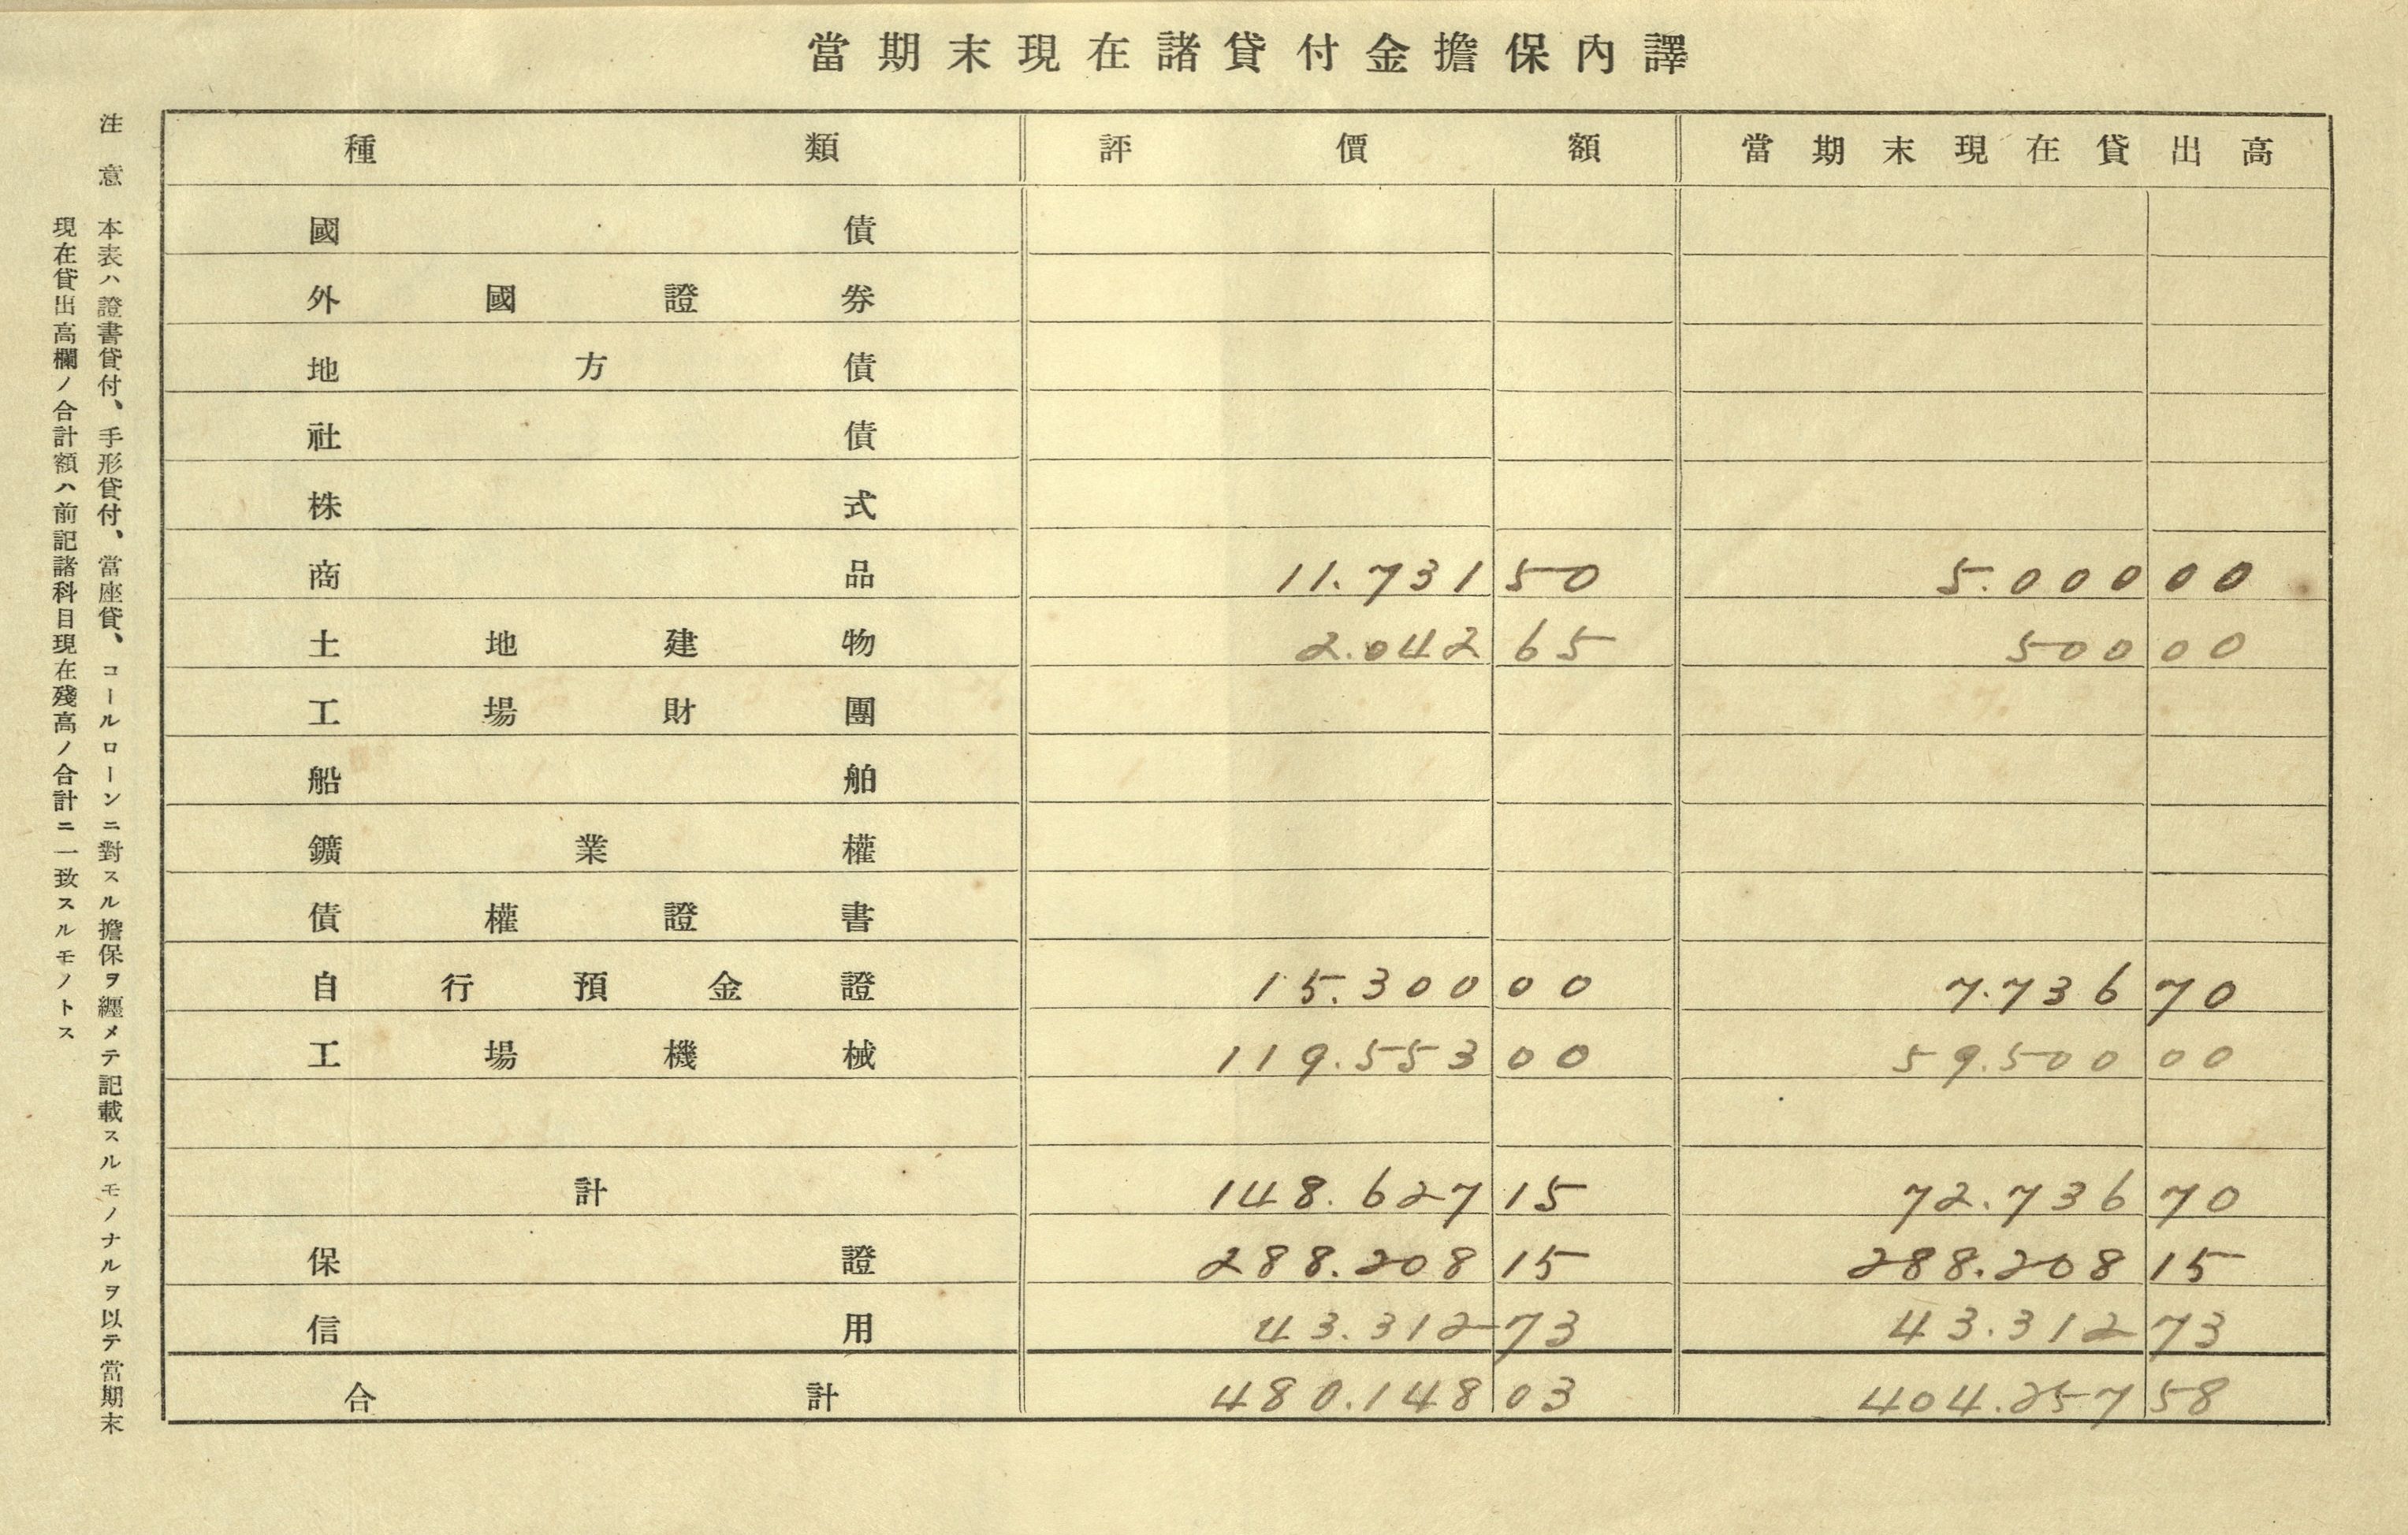 當期末現在諸貸付金擔保內譯
種類 評價額 當期末現在貸出高
國債
外國證券
地方債
社債
株式
商品 11.731 50 5.000 00
土地建物 2.042 65 500 00
工場財團
船舶
鑛業權
債權證書
自行預金證 15.300 00 7.736 70
工場機械 119.553 00 59.500 00
計 148.627 15 72.736 70
保證 288.208 15 288.208 15
信用 43.312 73 43.312 73
合計 480.148 03 404.257 58
注意 本表ハ證書貸付、手形貸付、當座貸、コールローンニ對スル擔保ヲ纒メテ記載スルモノナルヲ以テ當期末
現在貸出高欄ノ合計額ハ前記諸科目現在殘高ノ合計ニ一致スルモノトス